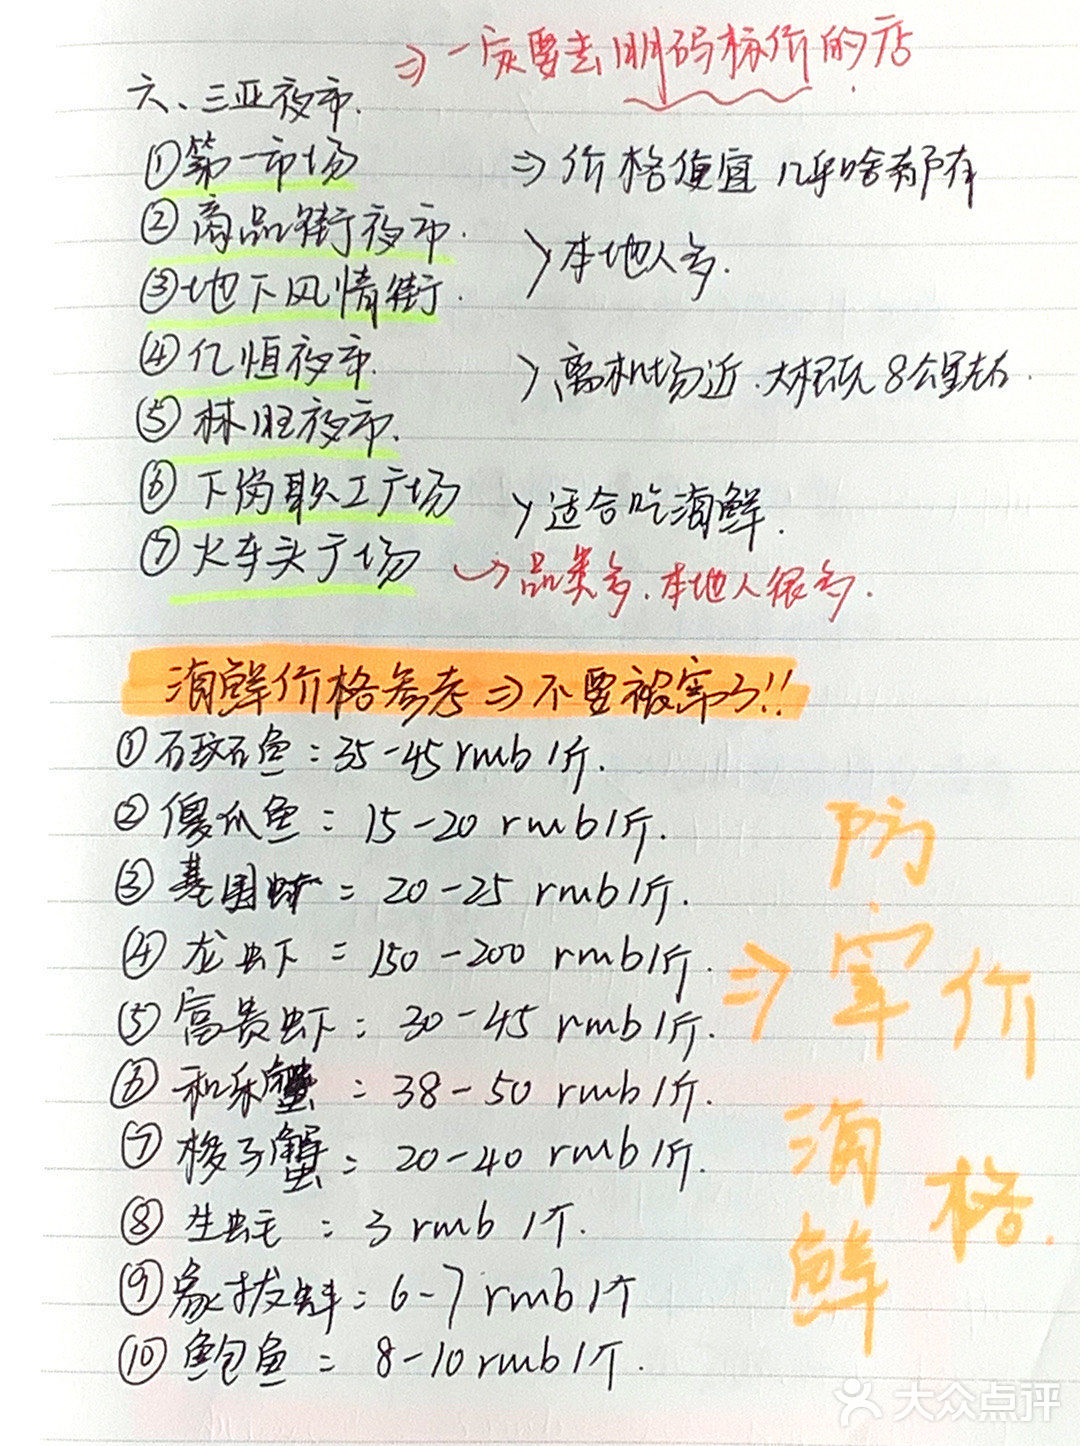 ⇒一定要去明码标价的店
六、三亚夜市.
①第一市场 ⇒价格便宜 几乎啥都有
②商品街夜市.
>本地人多.
③地下风情街.
④亿恒夜市. >离机场近.大概玩8公里左右.
⑤林旺夜市.
⑥下岗职工广场 >适合吃海鲜.
⑦火车头广场 →品类多.本地人很多.
海鲜价格参考⇒不要被宰了!!
①石斑鱼:35-45rmb1斤.
②傻瓜鱼:15-20 rmb1斤.
③基围虾:20-25 rmb1斤.
④龙虾:150-200 rmb1斤.
⑤富贵虾:30-45 rmb1斤.
⑥和乐蟹:38-50 rmb1斤.
⑦梭子蟹:20-40 rmb1斤.
⑧生蚝:3 rmb 1个.
⑨象拔蚌:6-7 rmb1个
⑩鲍鱼:8-10rmb1个.
⇒防宰海鲜
价格.
大众点评